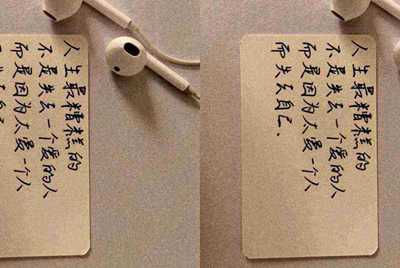 人生最糟糕的
不是失去一个爱的人
而是因为太爱一个人
人生最糟糕的
不是失去一个爱的人
而是因为太爱一个人
而失去自己、